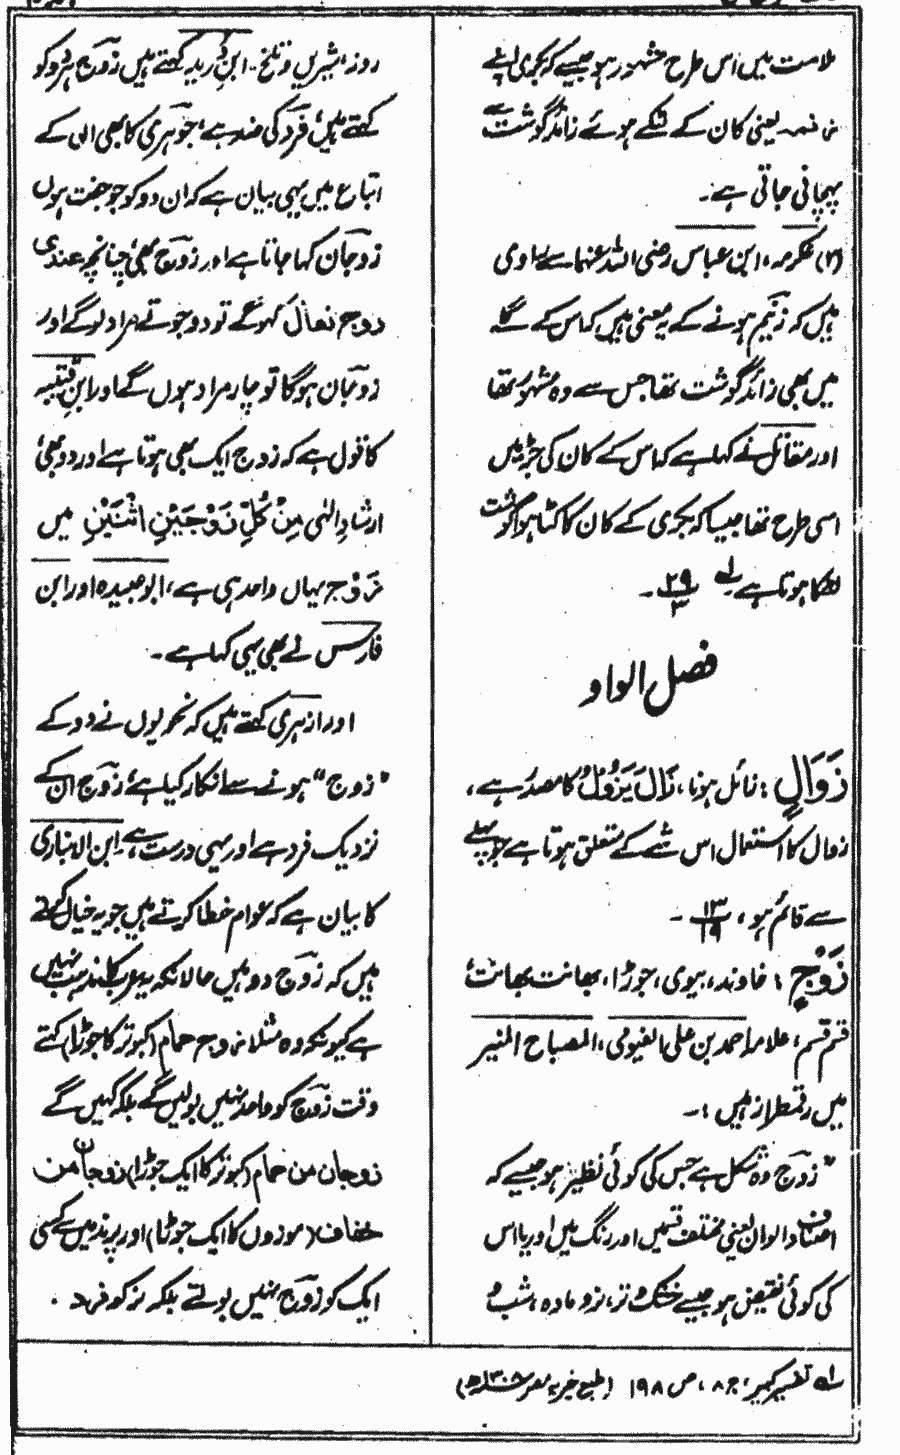 ملامت میں اس طرح مشہور ہو جیسے کہ بکری اپنے
زنمہ یعنی کان کے لٹکے ہوئے زائد گوشت سے
پہچانی جاتی ہے۔
(۲) عکرمہ، ابن عباس رضی اللہ عنہما سے راوی
ہیں کہ زنیم ہونے کے یہ معنی ہیں کہ اس کے گلے
میں بھی زائد گوشت تھا جس سے وہ مشہور تھا
اور مقاتل نے کہا ہے کہ اس کے کان کی جڑ میں
اسی طرح تھا جیسا کہ بکری کے کان کا کٹا ہوا گوشت
لٹکا ہوتا ہے لہ ۲۹/۳ ۔
فصل الواو
زَوَالٍ : زائل ہونا، زَالَ یَزُوْلُ کا مصدر ہے،
زوال کا استعمال اس شے کے متعلق ہوتا ہے جو پہلے
سے قائم ہو، ۱۳/۱۹ ۔
زَوْجٍ : خاوند، بیوی، جوڑا، بھانت بھانت
قسم قسم، علامہ احمد بن علی الفیومی، المصباح المنیر
میں رقمطراز ہیں :۔
"زوج وہ شکل ہے جس کی کوئی نظیر ہو جیسے کہ
اصناف و الوان یعنی مختلف قسمیں اور رنگ ہیں اور یا اس
کی کوئی نقیض ہو جیسے خشک و تر، نر و مادہ، شب و
روز، شیریں و تلخ۔ ابن درید کہتے ہیں زوج ہر دو کو
کہتے ہیں، فرد کی ضد ہے، جوہری کا بھی اسی کے
اتباع میں یہی بیان ہے کہ ان دو کو جو جفت ہوں
زوجان کہا جاتا ہے اور زوج بھی، چنانچہ عندی
زوج نعال کہو گے تو دو جوتے مراد لو گے اور
زوجان ہوگا تو چار مراد ہوں گے اور ابن قتیبہ
کا قول ہے کہ زوج ایک بھی ہوتا ہے اور دو بھی،
ارشادِ الٰہی مِنْ كُلٍّ زَوْجَيْنِ اثْنَيْنِ میں
زَوْج یہاں واحد ہی ہے، ابو عبیدہ اور ابن
فارس نے بھی یہی کہا ہے۔
اور ازہری کہتے ہیں کہ نحویوں نے دو کے
"زوج" ہونے سے انکار کیا ہے، زوج ان کے
نزدیک فرد ہے اور یہی درست ہے، ابن الانباری
کا بیان ہے کہ عوام خطا کرتے ہیں جو یہ خیال کرتے
ہیں کہ زوج دو ہیں حالانکہ یہ عرب کا مذہب نہیں
ہے کیونکہ وہ مثلاً زوج حمام (کبوتر کا جوڑا) کہتے
وقت زوج کو واحد نہیں بولیں گے بلکہ کہیں گے
زوجان من حمام (کبوتر کا ایک جوڑا) زوجان من
خفاف (موزوں کا ایک جوڑا) اور پرند میں سے کسی
ایک کو زوج نہیں بولتے بلکہ نر کو فرد .
لہ تفسیر کبیر، ج ۸، ص ۱۹۸ (طبع خیریہ مصر ۱۳۰۸ھ)